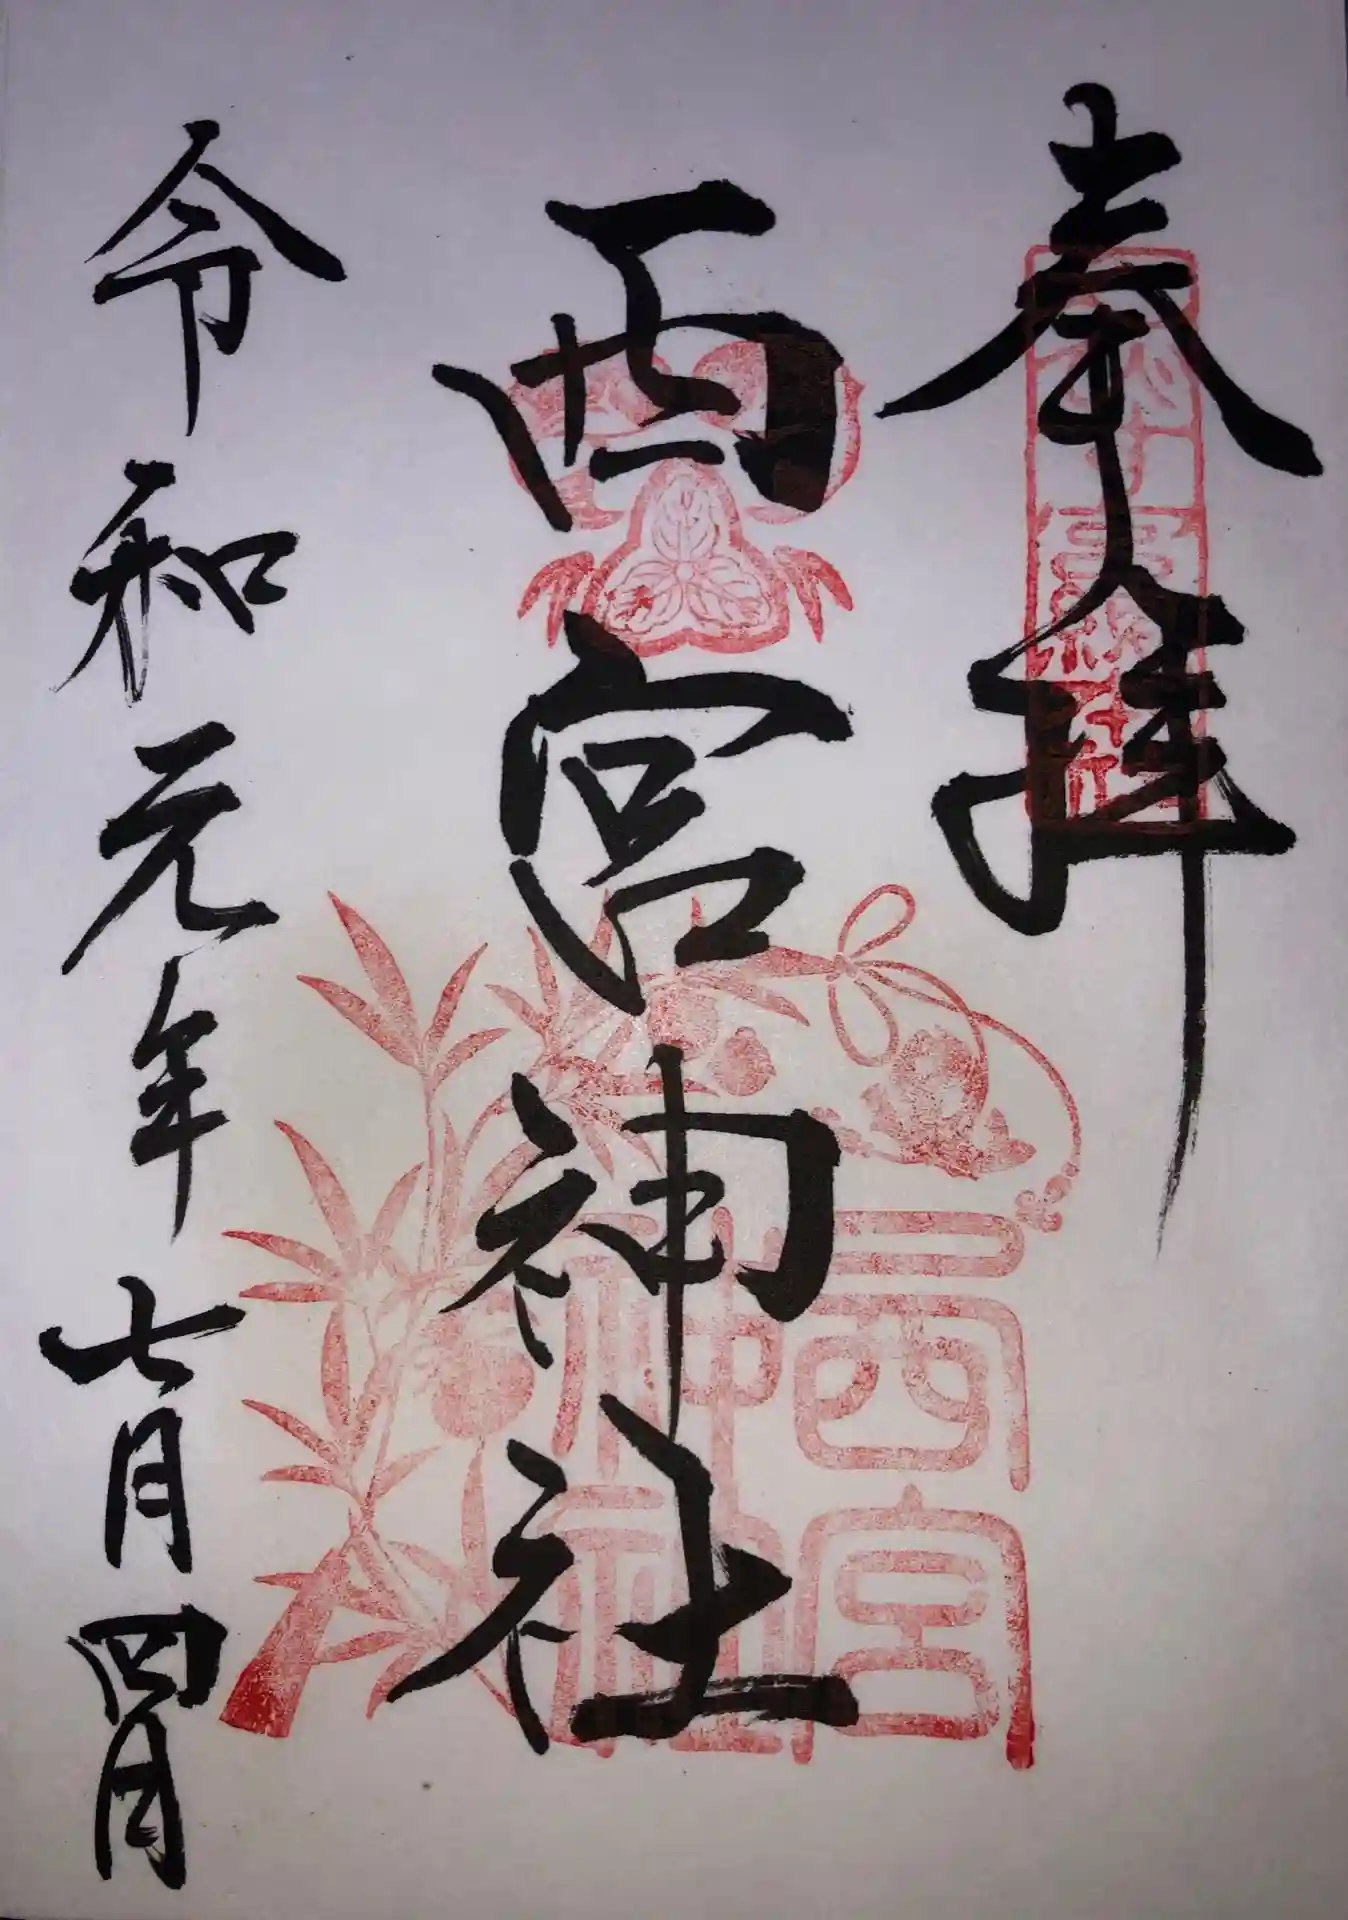 奉拝
西宮神社
令和元年七月四日
西宮
神社